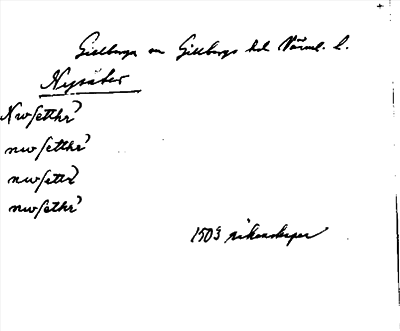 Gillberga sn Gillbergs hd Värml. l.
Nysäter
Nwsetthr
nwsetthr
nwsettr
nwsethr
1503 räkenskaper